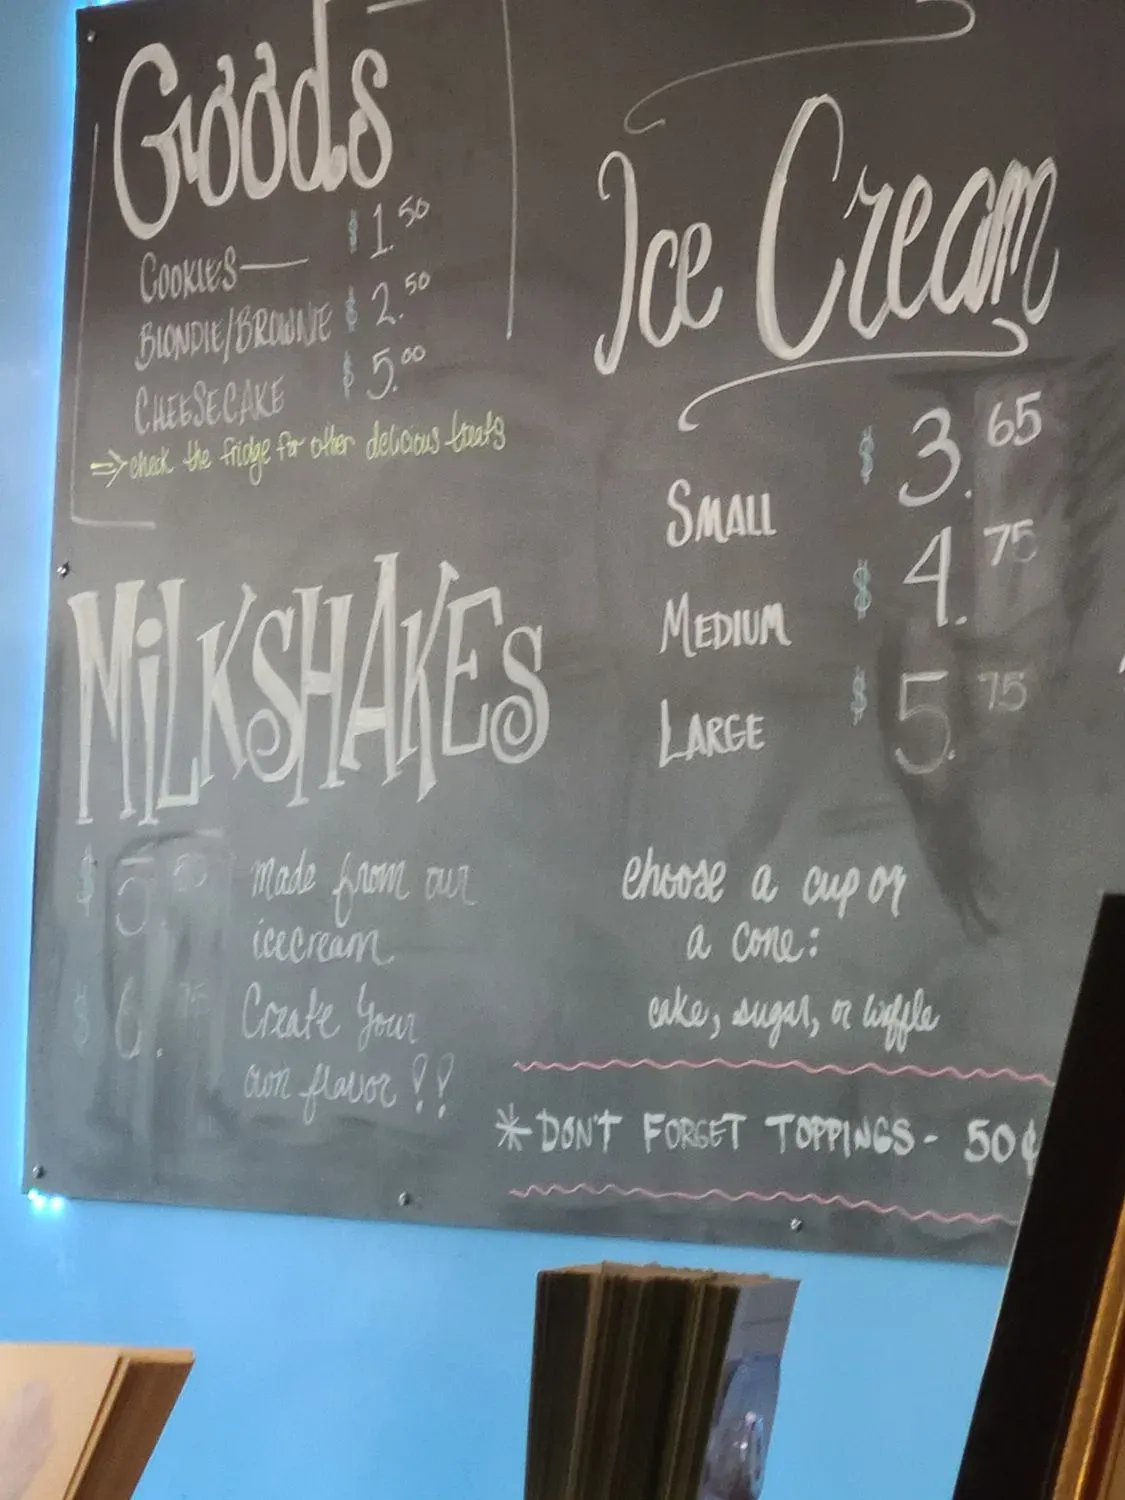 Goods
COOKIES — $ 1.50
BLONDIE/BROWNIE $ 2.50
CHEESECAKE $ 5.00
⇒ check the fridge for other delicious treats
MILKSHAKES
$ 5.50 made from our
icecream
$ 6.75 Create your
own flavor!!
Ice Cream
SMALL $ 3.65
MEDIUM $ 4.75
LARGE $ 5.75
choose a cup or
a cone:
cake, sugar, or waffle
*DON'T FORGET TOPPINGS - 50¢